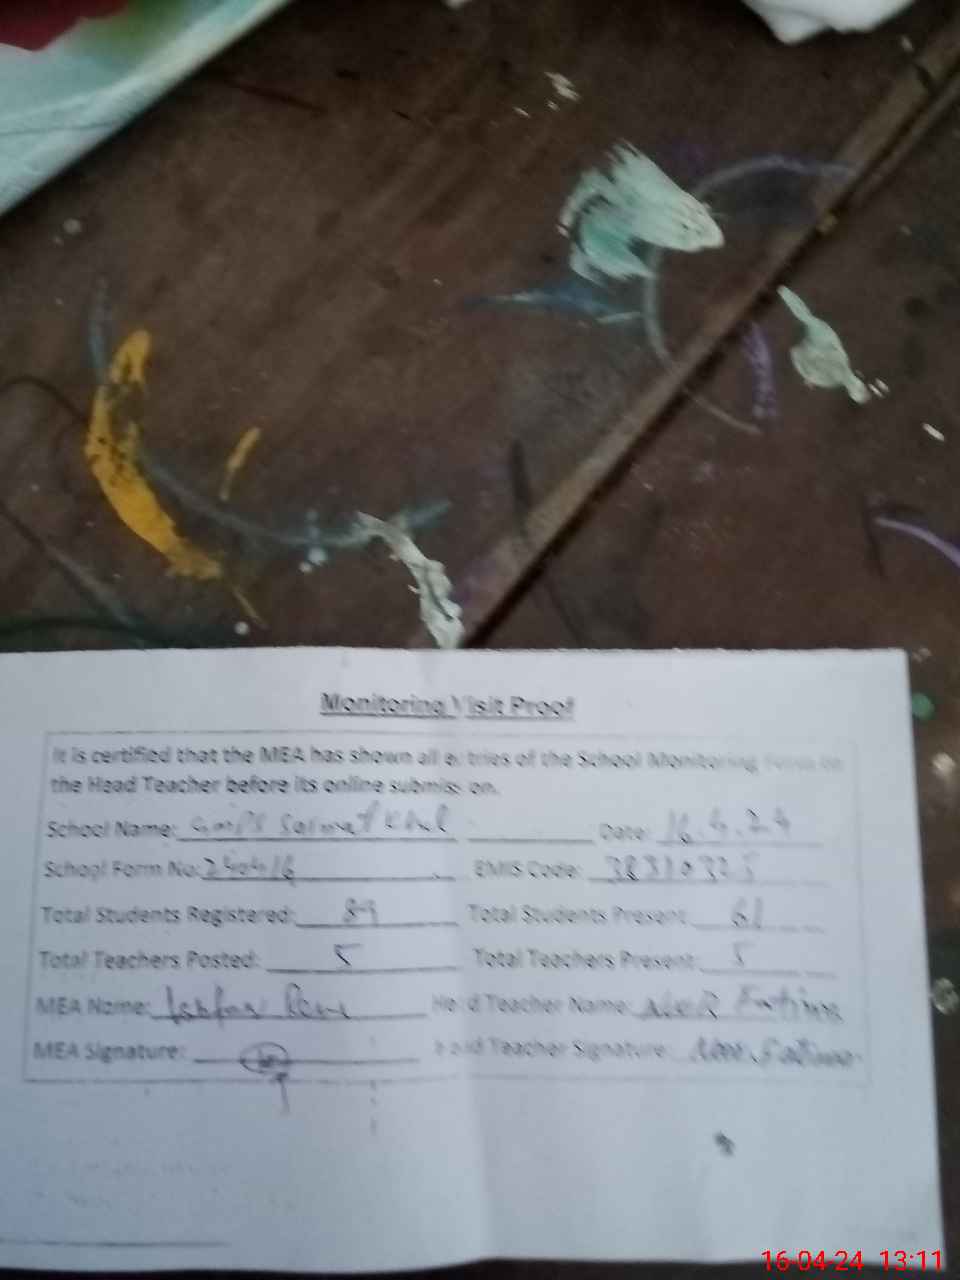 Monitoring Visit Proof
It is certified that the MEA has shown all entries of the School Monitoring Form to
the Head Teacher before its online submission.
School Name: GMPS Date: 16.4.24
School Form No: 240416 EMIS Code: 38310325
Total Students Registered: 89 Total Students Present: 61
Total Teachers Posted: 5 Total Teachers Present: 5
MEA Name: Head Teacher Name: Noor Fatima
MEA Signature: Head Teacher Signature: Noor Fatima
16-04-24 13:11